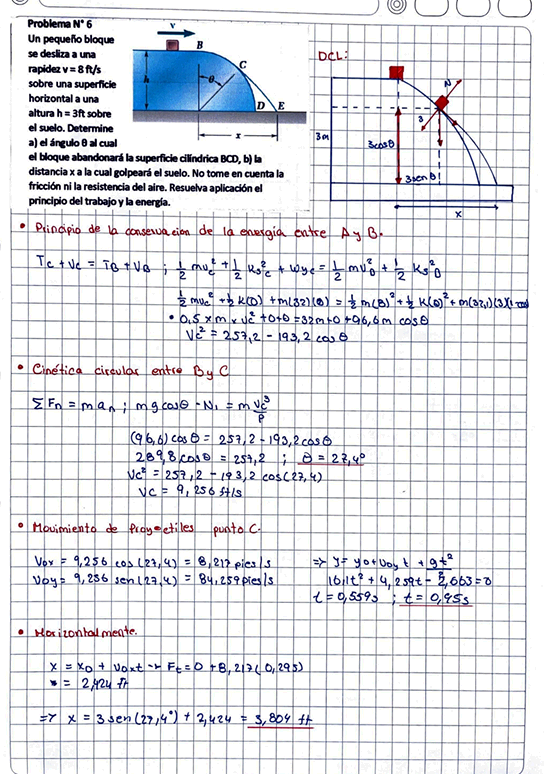 Problema N° 6
Un pequeño bloque
se desliza a una
rapidez v = 8 ft/s
sobre una superficie
horizontal a una
altura h = 3ft sobre
el suelo. Determine
a) el ángulo θ al cual
el bloque abandonará la superficie cilíndrica BCD, b) la
distancia x a la cual golpeará el suelo. No tome en cuenta la
fricción ni la resistencia del aire. Resuelva aplicación el
principio del trabajo y la energía.
v
B
C
h
θ
D
E
x
DCL:
N
3m
3cosθ
3senθ
x
• Principio de la conservacion de la energia entre A y B.
Tc + Vc = TB + VB ; 1/2 mvc² + 1/2 Ksc² + Wyc = 1/2 mVB² + 1/2 KsB²
1/2 mvc² + 1/2 K(0) + m(32)(0) = 1/2 m(8)² + 1/2 K(0)² + m(32,1)(3)(1-cosθ)
• 0,5 x m x vc² + 0 + 0 = 32m + 0 + 96,6m cosθ
Vc² = 257,2 - 193,2 cosθ
• Cinética circular entre B y C
ΣFn = m an ; mg cosθ - N1 = m Vc³/P
(96,6) cosθ = 257,2 - 193,2cosθ
289,8 cosθ = 257,2 ; θ = 27,4°
Vc² = 257,2 - 193,2 cos(27,4)
Vc = 9,256 ft/s
• Movimiento de Proyectiles punto C.
Vox = 9,256 cos(27,4) = 8,217 pies/s
Voy = 9,256 sen(27,4) = 84,259 pies/s
⇒ y = yo + voy t + gt²/2
16,1t² + 4,259t - 2,663 = 0
t = 0,559s ; t = 0,95s
• Horizontalmente.
x = x0 + v0xt → Ft = 0 + 8,217(0,295)
= 2,424 ft
⇒ x = 3 sen(27,4°) + 2,424 = 3,804 ft